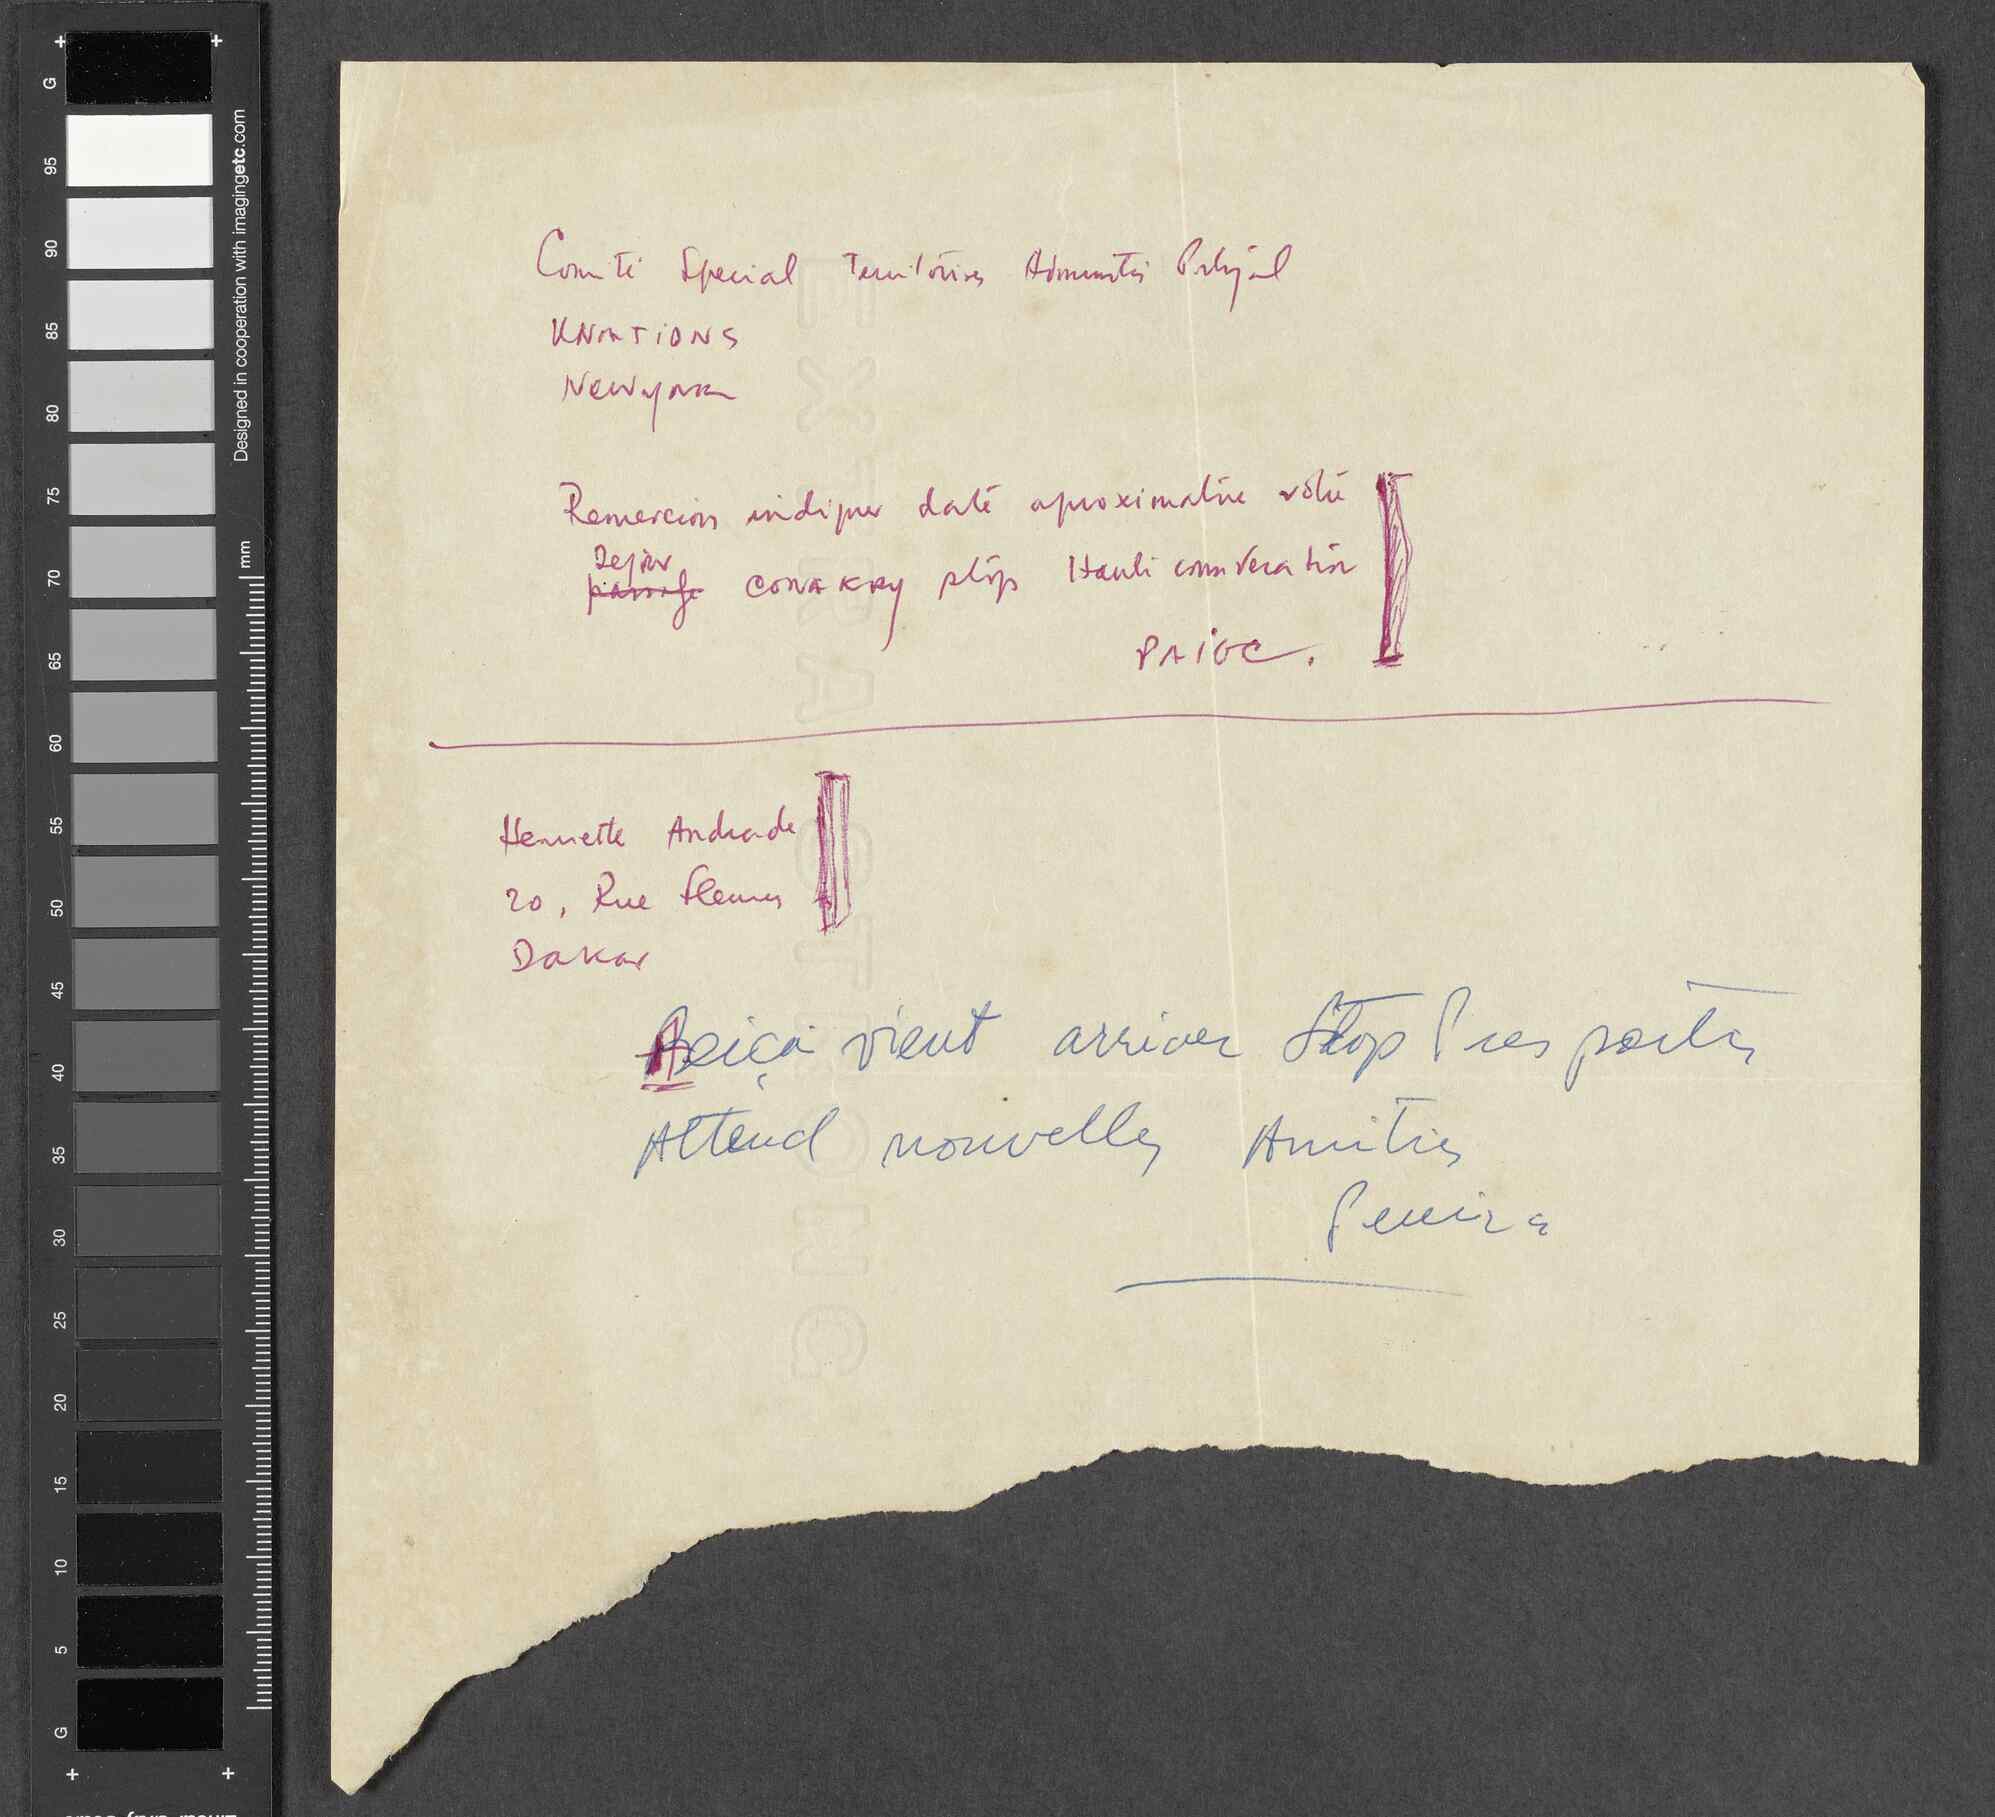 Comité Special Territoires Administrés Portugal
UNATIONS
Newyork
Remercions indiquer daté aproximative vôtre
Sejour
passage CONAKRY stop Haute consideration
PAIGC.
Henriette Andrade
20, Rue Fleurus
Dakar
vient arriver Stop Pres partir
Attend nouvelles Amitiés
Pereira
EXTRA STRONG
G
95
90
85
80
75
70
65
60
55
50
45
40
35
30
25
20
15
10
5
G
mm
Designed in cooperation with imagingetc.com